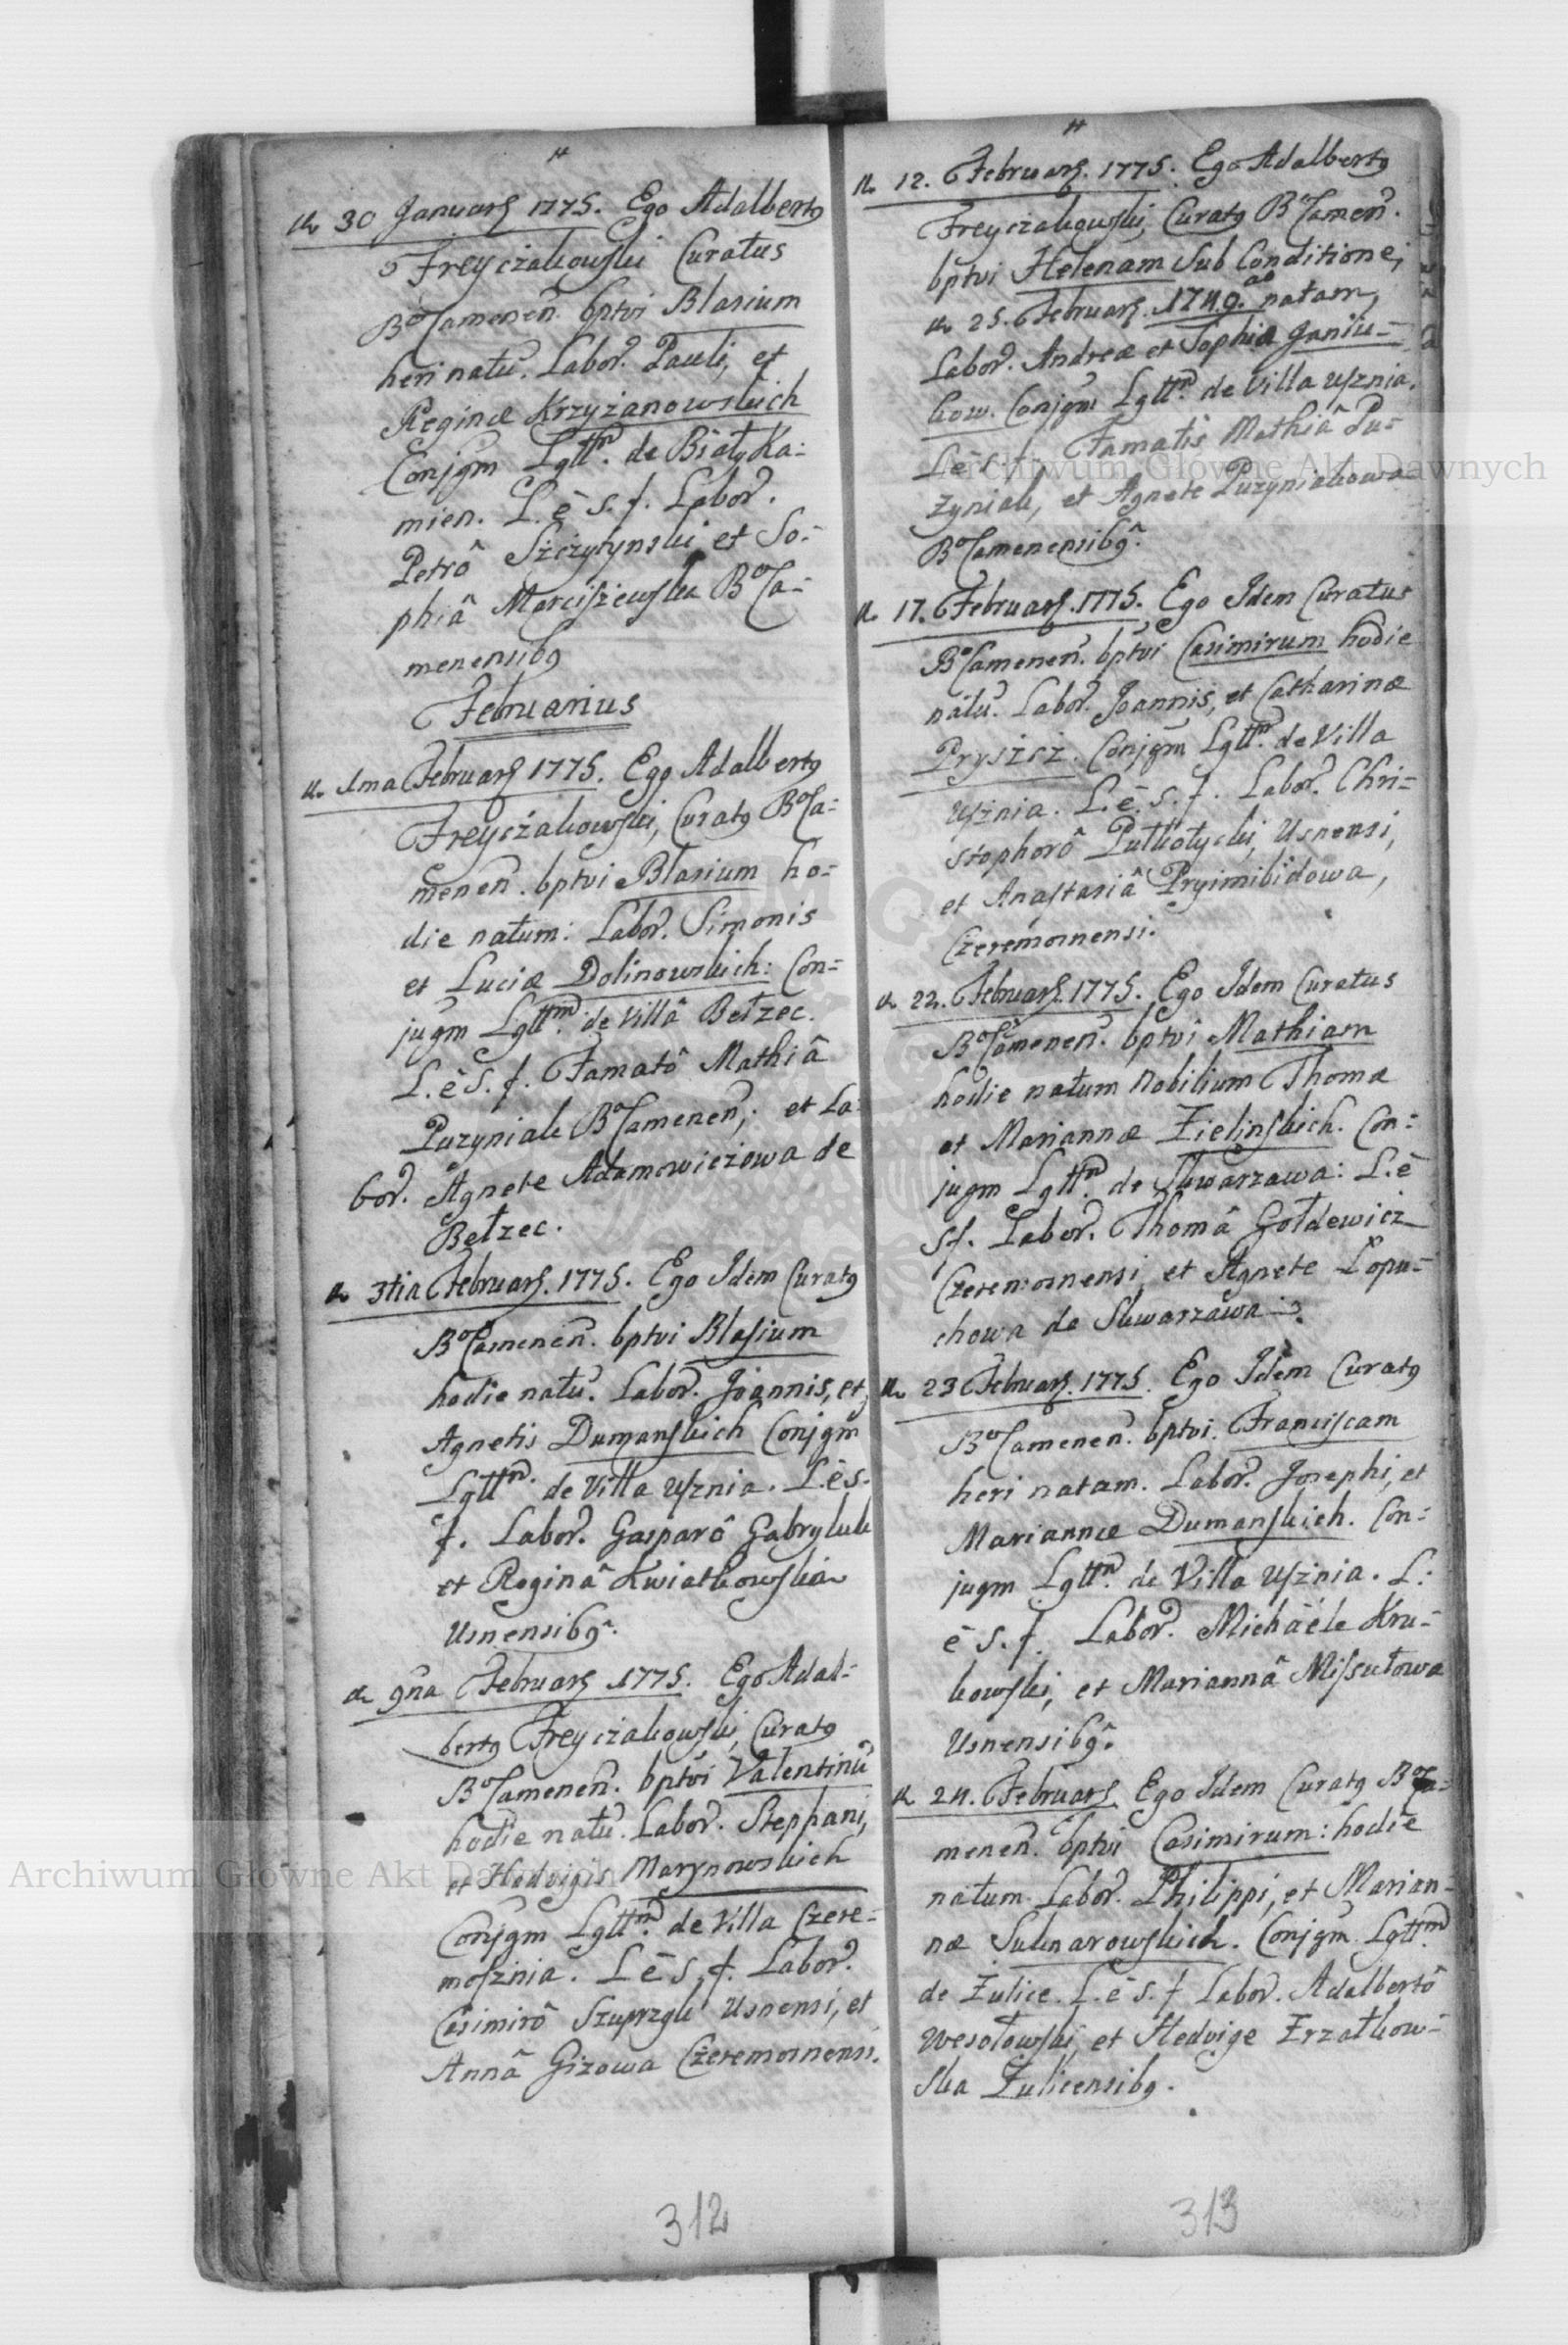 30 Januarÿ 1775. Ego Adalbertꝯ
Freyczakowski Curatus
BoCamenen̄. bptvi Blasium
heri natū. Labor. Pauli, et
Reginæ Krzyżanowskich
Conjgm Lgttm. de Biały Ka:
mien. L. ē S. f. Labor.
Petrô Szczytynski et So:
phiâ Marciszewska BoCa:
menensibꝯ
Februarius
1ma Februarÿ 1775. Ego Adalbertꝯ
Freyczakowski, Curatꝯ BoCa:
menen̄. bptvi Blasium ho:
die natum: Labor. Simonis
et Luciæ Dolinowskich: Con:
jugm Lgttm. de Villâ Bełzec.
L. ē S. f. Famatô Mathiâ
Puzyniak BoCamenen̄; et La:
bor. Agnete Adamowiczowa de
Bełzec.
3tia Februarÿ. 1775. Ego Idem Curatꝯ
BoCamenen̄. bptvi Blasium
hodie natū. Labor. Joannis, et
Agnetis Dumanskich Conjgm
Lgttm. de Villa Usznia. L. ē S.
f. Labor. Gasparô Gabryluk
et Reginâ Kwiatkowska
Usnensibꝯ.
9na Februarÿ 1775. Ego Adal:
bertꝯ Freyczakowski, Curatꝯ
BoCamenen̄. bptvi Valentinū
hodie natū. Labor. Stephani,
et Hedvigis Marynowskich
Conjgm Lgttm. de Villa Czere:
mosznia. L ē S. f. Labor.
Casimirô Szuprzgk Usnensi, et
Annâ Gizowa Czeremosnensi.
312
12. Februarÿ. 1775. Ego Adalbertꝯ
Freyczakowski, Curatꝯ BoCamen̄.
bptvi Helenam Sub Conditione,
25. Februarÿ. 1749. ao natam,
Labor. Andreæ et Sophiæ Janiu:
kow. Conjgm Lgttm. de Villa Usznia.
L ē S. f. Famatis Mathiâ Pu:
zyniak, et Agnete Puzyniakowa
BoCamenensibꝯ.
17. Februarÿ. 1775. Ego Idem Curatus
BoCamenen̄. bptvi Casimirum hodie
natū. Labor. Joannis, et Catharinæ
Pryszcz. Conjgm Lgttm. de Villa
Usznia. L. ē. S. f. Labor. Chri:
stophorô Pułkotycki, Usnensi,
et Anastasiâ Pryimibidowa,
Czeremosnensi.
22. Februarÿ. 1775. Ego Idem Curatus
BoCamenen̄. bptvi Mathiam
hodie natum Nobilium Thomæ
et Mariannæ Zielinskich. Con:
jugm Lgttm. de Skwarzawa: L. ē
S f. Labor. Thomâ Gołdewicz
Czeremosnensi et Agnete Lopu:
chowa de Skwarzawa.
23 Februarÿ. 1775. Ego Idem Curatꝯ
BoCamenen̄. bptvi. Franciscam
heri natam. Labor. Josephi, et
Mariannæ Dumanskich. Con:
jugm Lgttm. de Villa Usznia. L:
ē S. f. Labor. Michaële Kru:
kowski, et Mariannâ Missutowa
Usnensibꝯ.
24. Februarÿ Ego Idem Curatꝯ BoCa:
menen̄. bptvi Casimirum: hodie
natum Labor. Philippi, et Marian:
næ Suknarowskich. Conjgm Lgttm
de Żulice. L. ē S. f Labor. Adalbertô
Wesołowski, et Hedvige Erzatkow:
ska Żulicensibꝯ.
313
Archiwum Główne Akt Dawnych
Archiwum Główne Akt Dawnych